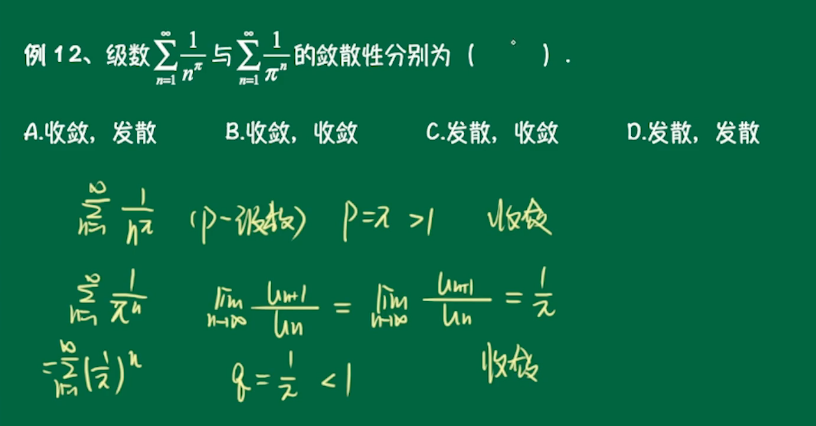 例 12、级数 $\sum_{n=1}^{\infty}\frac{1}{n^{\pi}}$ 与 $\sum_{n=1}^{\infty}\frac{1}{\pi^{n}}$ 的敛散性分别为（ ）.
A.收敛，发散 B.收敛，收敛 C.发散，收敛 D.发散，发散
$\sum_{n=1}^{\infty}\frac{1}{n^{\pi}}$ (p-级数) $p=\pi>1$ 收敛
$\sum_{n=1}^{\infty}\frac{1}{\pi^{n}}$ $\lim_{n\to\infty}\frac{u_{n+1}}{u_n}=\lim_{n\to\infty}\frac{u_{n+1}}{u_n}=\frac{1}{\pi}$
$=\sum_{n=1}^{\infty}(\frac{1}{\pi})^{n}$ $q=\frac{1}{\pi}<1$ 收敛